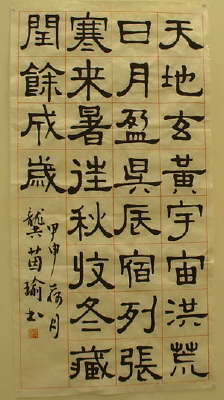 天地玄黃宇宙洪荒
日月盈昃辰宿列張
寒来暑往秋收冬藏
閏餘成歲
甲申荷月
龔茵瑜书